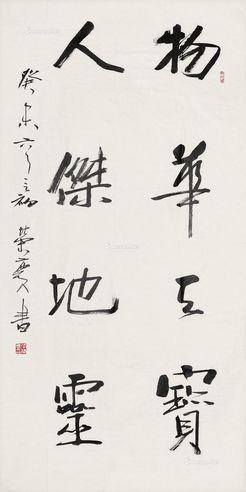 物華天寶
人傑地靈
癸未六月之初 榮慶書